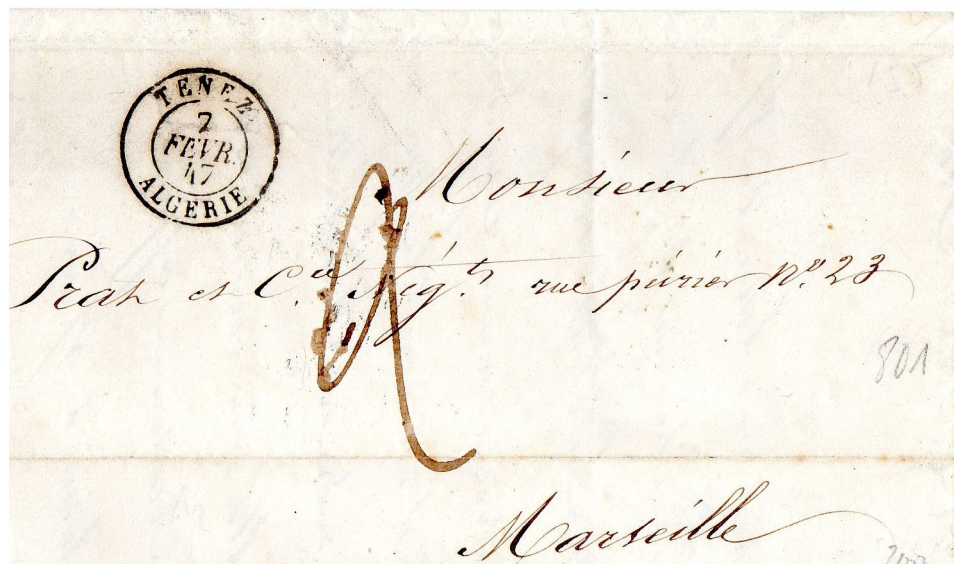 TENEZ
2
FEVR.
47
ALGERIE
Monsieur
Prat et C.ie Nég.ts rue périer N.º 23
801
Marseille